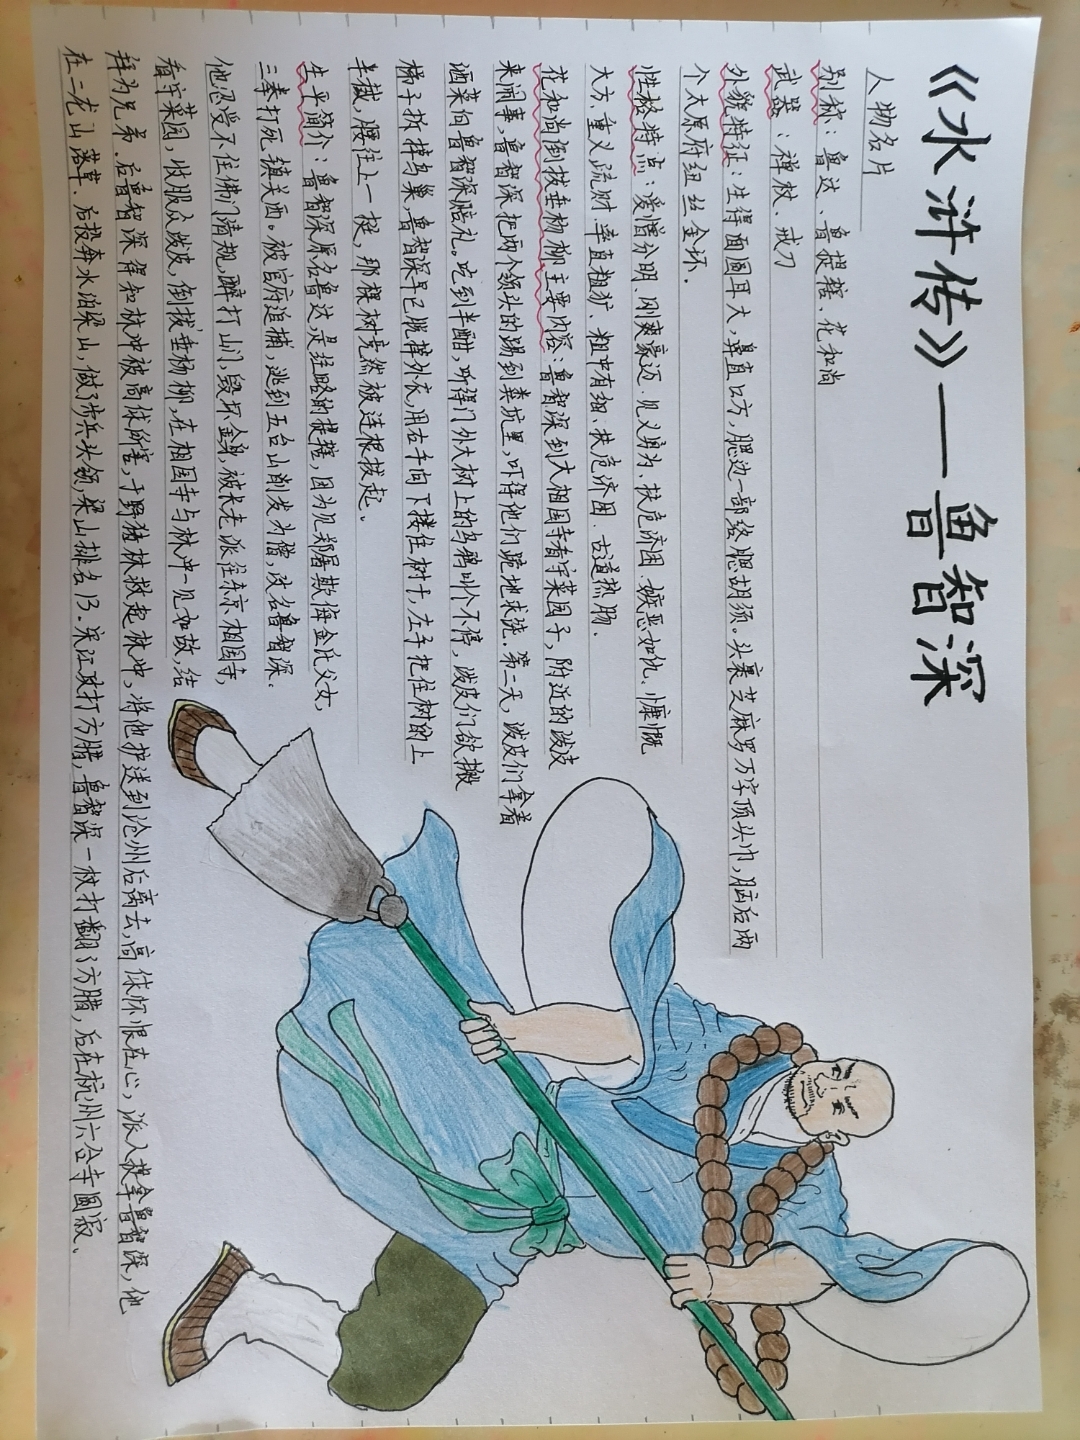 《水浒传》——鲁智深
人物名片
别称：鲁达、鲁提辖、花和尚
武器：禅杖、戒刀
外貌特征：生得面圆耳大，鼻直口方，腮边一部络腮胡须。头裹芝麻罗万字顶头巾，脑后两
个太原府纽丝金环。
性格特点：爱憎分明、刚爽豪迈、见义勇为、扶危济困、嫉恶如仇、慷慨
大方、重义疏财、率直粗犷、粗中有细、扶危济困、古道热肠、
花和尚倒拔垂杨柳主要内容：鲁智深到大相国寺看守菜园子，附近的泼皮
来闹事，鲁智深把两个领头的踢到粪坑里，吓得他们跪地求饶。第二天，泼皮们拿着
酒菜向鲁智深赔礼。吃到半酣，听得门外大树上的乌鸦叫个不停，泼皮们欲搬
梯子拆掉鸟巢，鲁智深早已脱掉外衣，用右手向下搂住树干，左手把住树的上
半截，腰往上一挺，那棵树竟然被连根拔起。
生平简介：鲁智深原名鲁达，是经略的提辖，因为见郑屠欺侮金氏父女，
三拳打死镇关西。被官府追捕，逃到五台山削发为僧，改名鲁智深。
他忍受不住佛门清规，醉打山门，毁坏金身，被长老派往东京相国寺，
看守菜园，收服众泼皮，倒拔垂杨柳，在相国寺与林冲一见如故，结
拜为兄弟。后鲁智深得知林冲被高俅所害，于野猪林救起林冲，将他护送到沧州后离去，高俅怀恨在心，派人捉拿鲁智深，他
在二龙山落草。后投奔水泊梁山，做了步兵头领，梁山排名13。宋江攻打方腊，鲁智深一杖打翻了方腊，后在杭州六合寺圆寂、